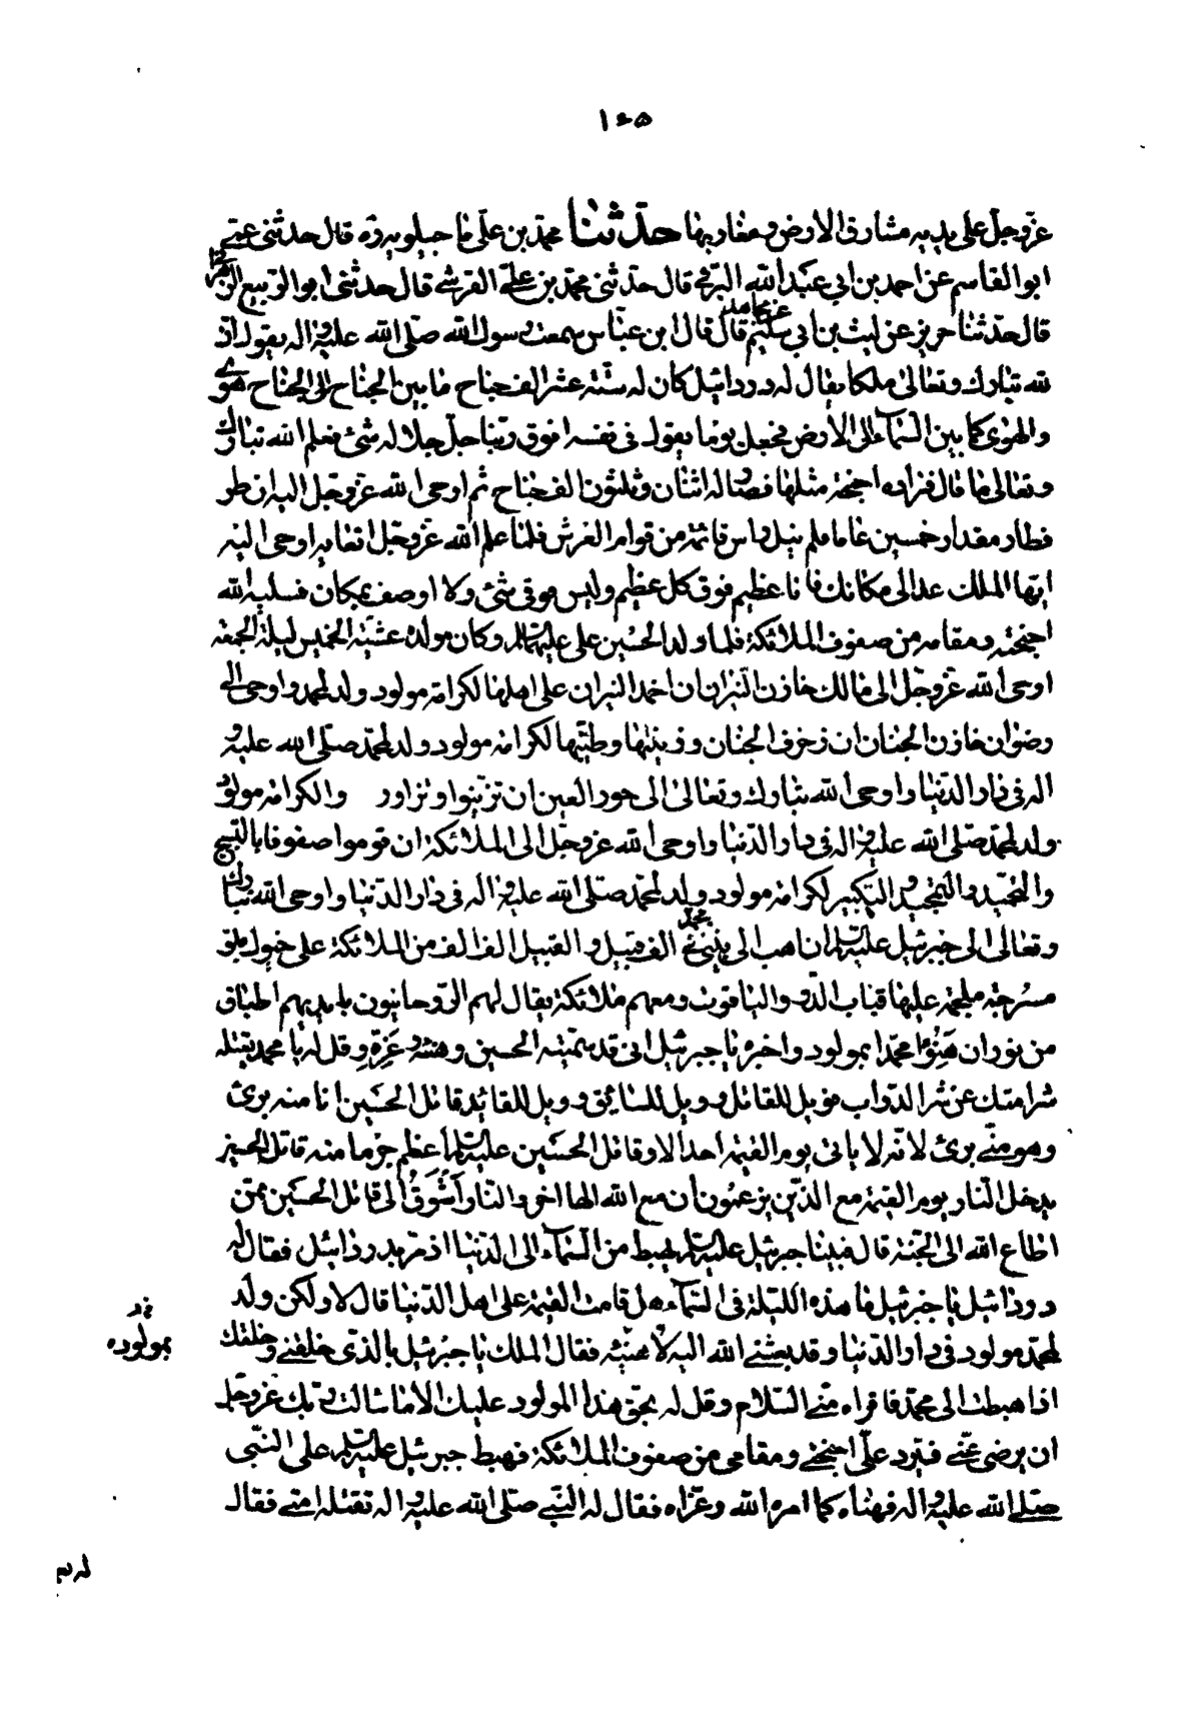 ١٦٥
عزوجل على يديه مشارق الارض ومغاربها حدثنا محمد بن على ماجيلويه ره قال حدثنى عمى
ابو القاسم عن احمد بن ابي عبد الله البرقى قال حدثنى محمد بن على القرشى قال حدثنى ابو الربيع الزهرانى
قال حدثنا حريز عن ليث بن ابي سليم عن مجاهد قال قال ابن عباس سمعت رسول الله صلى الله عليه واله يقول ان
لله تبارك وتعالى ملكا يقال له دردائيل كان له ستة عشر الف جناح ما بين الجناح الى الجناح هوى
والهوى كما بين السماء الى الارض فجعل يوما يقول فى نفسه افوق ربنا جل جلاله شئ فعلم الله تبارك
وتعالى ما قال فزاده اجنحة مثلها فصار له اثنان وثلثون الف جناح ثم اوحى الله عزوجل اليه ان طر
فطار مقدار خمسين عاما فلم ينل راس قائمة من قوام العرش فلما علم الله عزوجل اتعابه اوحى اليه
ايها الملك عد الى مكانك فانا عظيم فوق كل عظيم وليس فوقى شئ ولا اوصف بمكان فسلبه الله
اجنحته ومقامه من صفوف الملائكة فلما ولد الحسين على عليهما السلم وكان مولده عشية الخميس ليلة الجمعة
اوحى الله عزوجل الى مالك خازن النيران ان اخمد النيران على اهلها لكرامة مولود ولد لمحمد واوحى الى
رضوان خازن الجنان ان زخرف الجنان وزينها وطيبها لكرامة مولود ولد لمحمد صلى الله عليه و
اله فى دار الدنيا واوحى الله تبارك وتعالى الى حور العين ان تزينوا وتزاور والكرامة مولود
ولد لمحمد صلى الله عليه واله فى دار الدنيا واوحى الله عزوجل الى الملائكة ان قوموا صفوفا بالتسبيح
والتحميد والتمجيد والتكبير لكرامة مولود ولد لمحمد صلى الله عليه واله فى دار الدنيا واوحى الله تبارك
وتعالى الى جبرئيل عليه السلم ان اهبط الى نبيى محمد الف قبيل والقبيل الف الف من الملائكة على خيول بلق
مسرجة ملجمة عليها قباب الدر والياقوت ومعهم ملائكة يقال لهم الروحانيون بايديهم اطباق
من نور ان هنئوا محمدا بمولود واخبره يا جبرئيل انى قد سميته الحسين وهنئه وعزه وقل له يا محمد يقتله
شر امتك عن شر الدواب فويل للقاتل وويل للسائق وويل للقائد قاتل الحسين انا منه برئ
وهو منى برئ لانه لا ياتى يوم القيمة احد الا وقاتل الحسين عليه السلم اعظم جرما منه قاتل الحسين
يدخل النار يوم القيمة مع الذين يزعمون ان مع الله الها اخر والنار اشوق الى قاتل الحسين ممن
اطاع الله الى الجنة قال فبينا جبرئيل عليه السلم يهبط من السماء الى الدنيا اذ مر بدردائيل فقال له
دردائيل يا جبرئيل ما هذه الليلة فى السماء هل قامت القيمة على اهل الدنيا قال لا ولكن ولد
لمحمد مولود فى دار الدنيا وقد بعثنى الله اليه لاهنيه فقال الملك يا جبرئيل بالذى خلقنى وخلقك
اذا هبطت الى محمد فاقراه منى السلام وقل له بحق هذا المولود عليك الا ما سالت ربك عزوجل
ان يرضى عنى فيرد على اجنحتى ومقامى من صفوف الملائكة فهبط جبرئيل عليه السلم على النبى
صلى الله عليه واله فهناه كما امره الله وعزاه فقال له النبى صلى الله عليه واله تقتله امتى فقال
بمولوده
له نعم